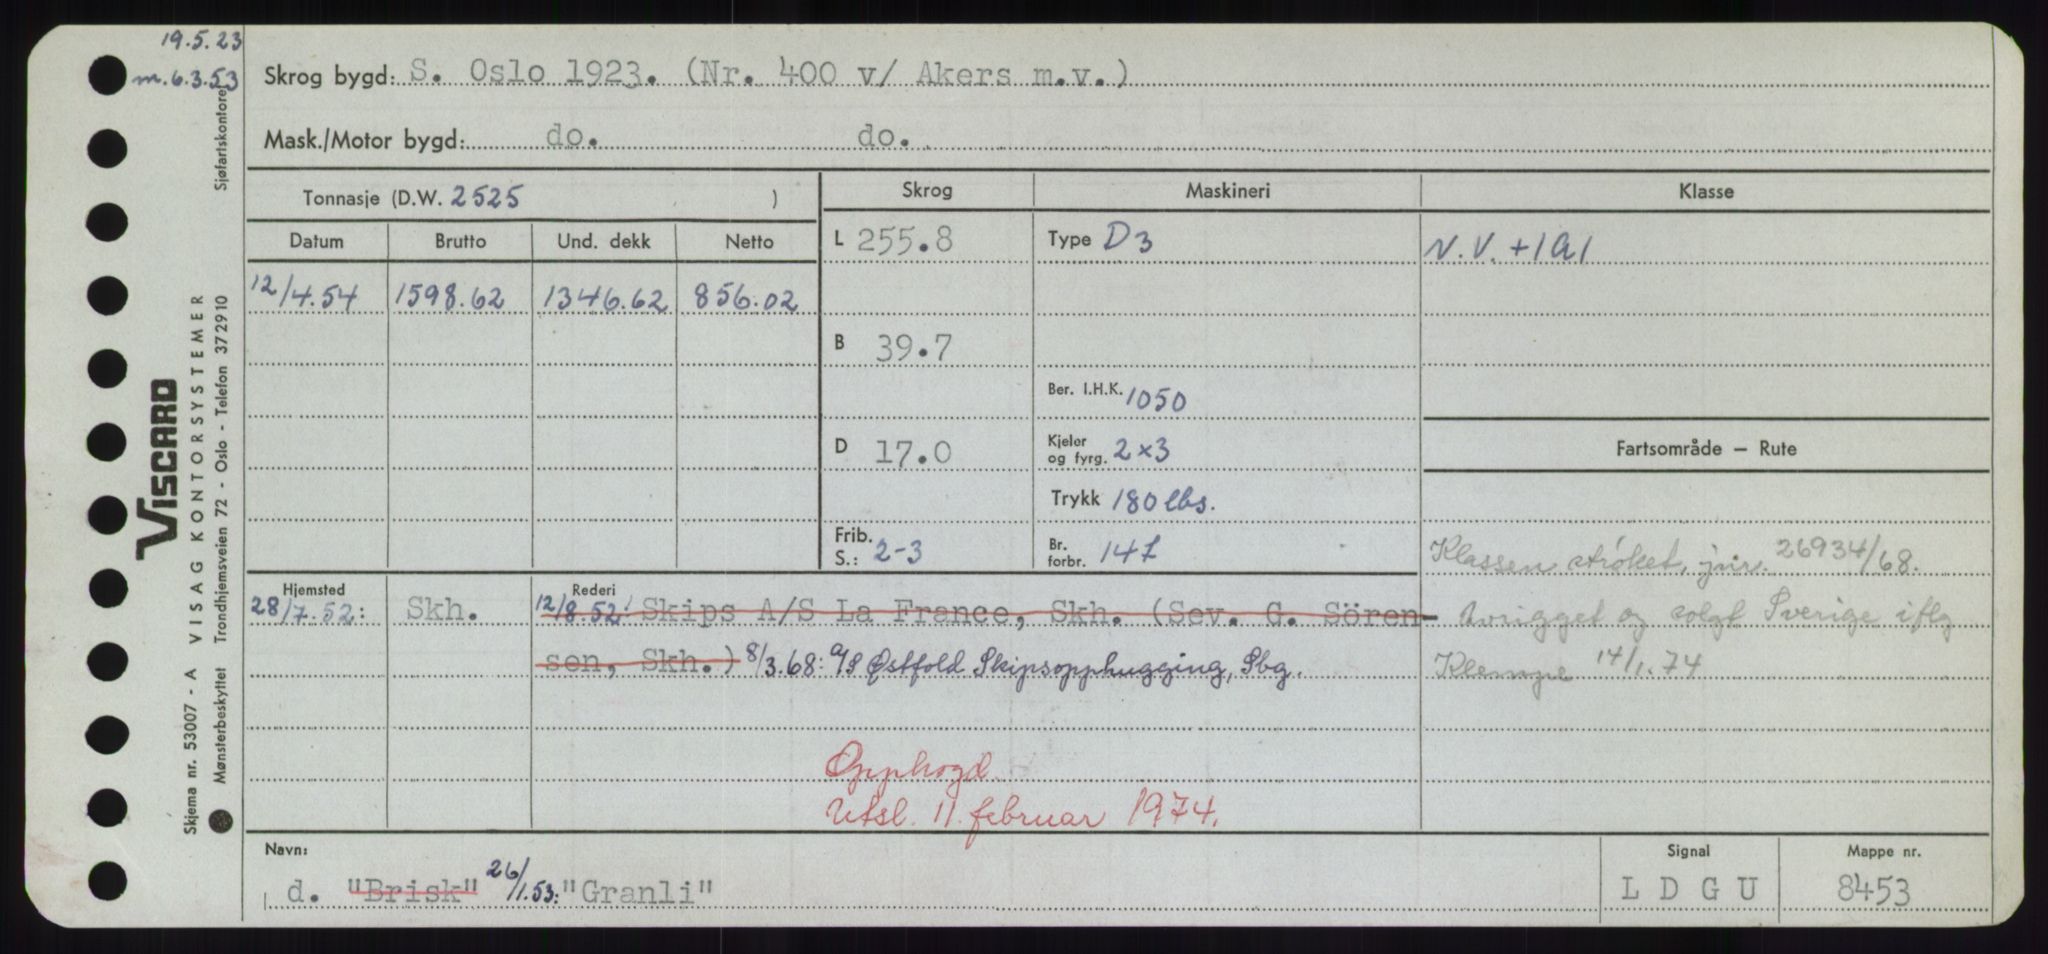 19.5.23
m.6.3.53
Skrog bygd: S. Oslo 1923. (Nr. 400 v/ Akers m.v.)
Mask./Motor bygd: do. do.
Sjøfartskontoret
Tonnasje (D.W. 2525 )
Skrog
Maskineri
Klasse
Datum Brutto Und. dekk Netto
L 255.8
Type D3
N.V. +1A1
12/4.54 1598.62 1346.62 856.02
B 39.7
Ber. I.H.K. 1050
D 17.0
Kjeler og fyrg. 2x3
Fartsområde — Rute
Trykk 180 lbs.
Frib. S.: 2-3
Br. forbr. 14 t
Klassen strøket, jnr. 26934/68.
Hjemsted
Rederi
28/7.52: Skh. 12/8.52: Skips A/S La France, Skh. (Sev. G. Sören-
sen, Skh.) 8/3.68: A/S Østfold Skipsopphugging, Sbg.
Avrigget og solgt Sverige iflg
Klempe 14/1.74
Opphogd.
Utsl. 11. februar 1974.
Navn:
d. "Brisk" 26/1.53: "Granli"
Signal
L D G U
Mappe nr.
8453
VISCARD
VISAG KONTORSYSTEMER
Trondhjemsveien 72 - Oslo - Telefon 372910
Skjema nr. 53007 - A
Mønsterbeskyttet